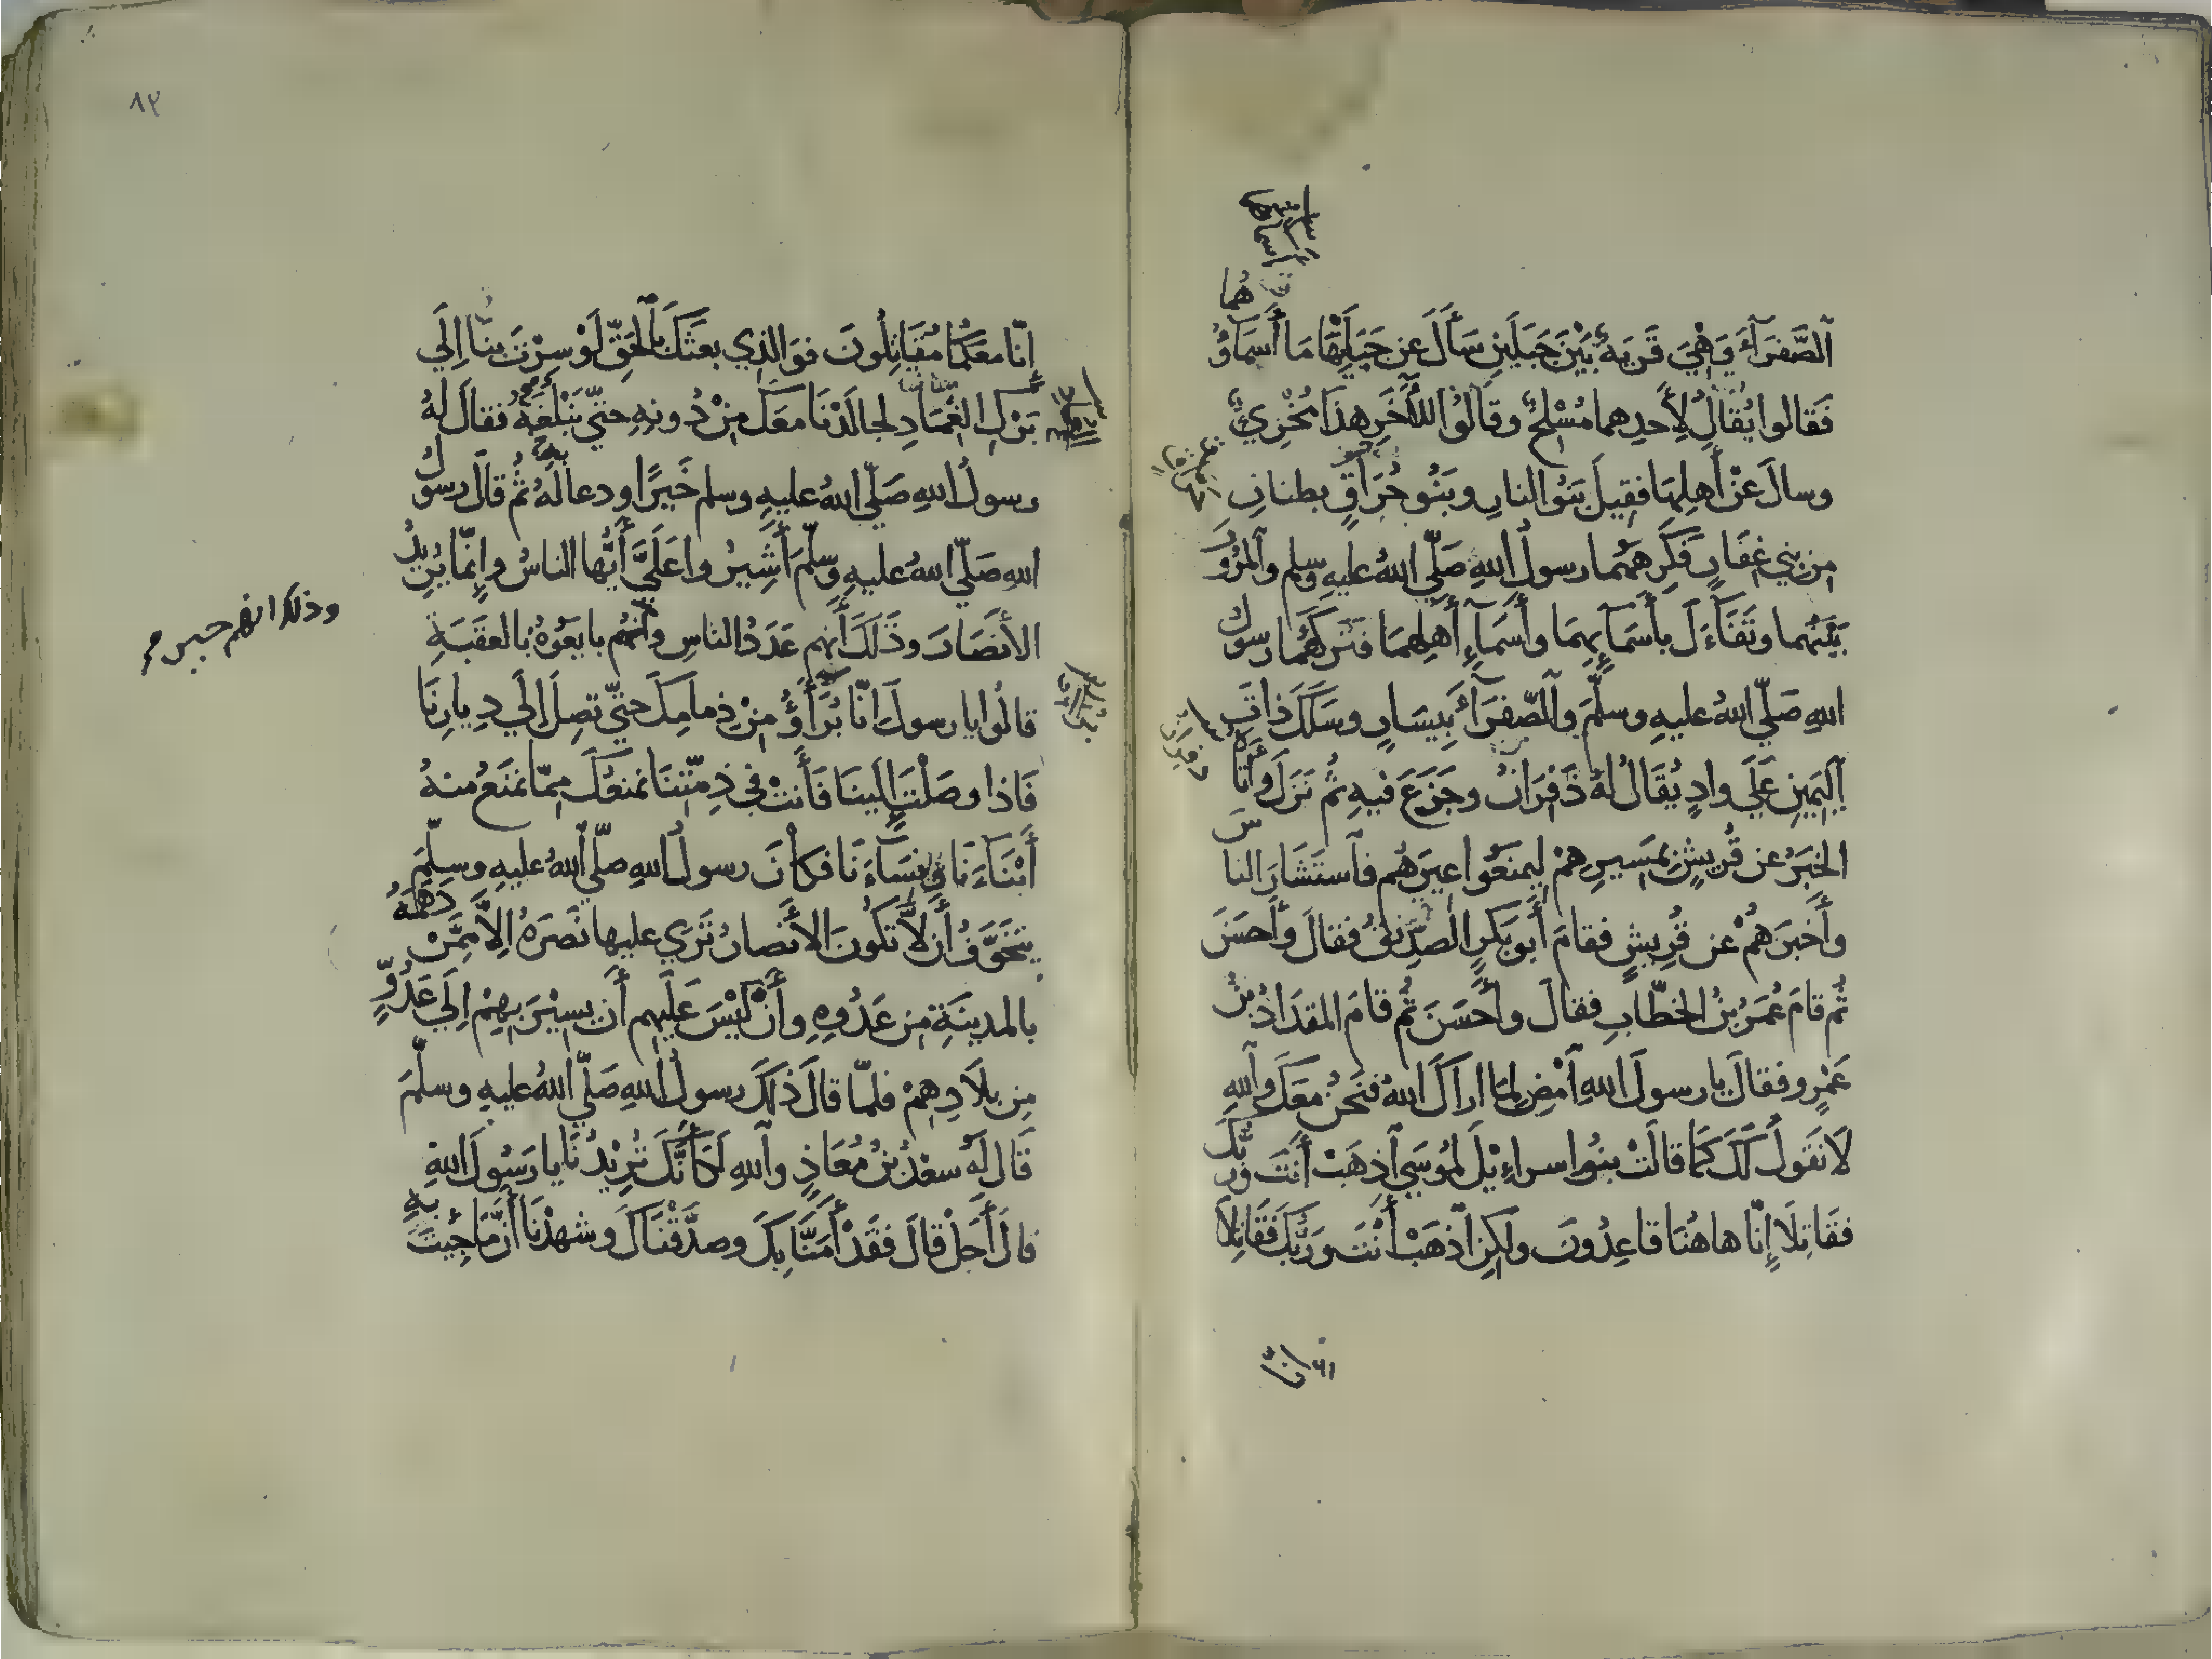 ٱلصَّفرَآءَ وَهْيَ قَريَةٌ بَيْنَ جَبَلَينِ سَأَلَ عَن جَبَلَيْهَا مَا أَسمَاؤُهُما
فَقالوا يُقَالُ لِأَحدِهما مُسْلِحٌ وقَالُوا لِلْآخَرِ هذَا مُخْرِيءٌ
وسالَ عَنْ أَهلِهِمَا فقِيلَ بَنُو النارِ وبَنُو حُرَاقٍ بطنانِ
مِن بَني غِفَارٍ فكَرِهَهُما رسولُ اللهِ صَلّي اللهُ عليهِ وسلم وَٱلمُرُورَ
بَيْنَهُما وتَفَآءَلَ بأَسمَآئِهِمَا وأَسمَآءِ أَهلِهِمَا فتَركَهُمَا رسولُ
اللهِ صَلّي اللهُ عليهِ وسلّمَ وٱلصّفرَآءَ بِيَسَارٍ وسَلَكَ ذاتَ
ٱليَمِينِ عَلَي وادٍ يُقَالُ لهُ ذَفْرَانُ وجَزَعَ فيهِ ثُم نَزَلَ وأَتاهُ
الخبَرُ عن قُريشٍ بمَسيرِهِمْ لِيمنَعُوا عِيرَهُم فٱستَشَارَ الناسَ
وأَخبرَهُمْ عن قُريشٍ فقامَ أَبو بَكرٍ الصِدّيقُ فقالَ وأَحسَنَ
ثُم قامَ عُمَرُ بنُ الخطّابِ فقالَ وأَحسَنَ ثُم قامَ المقدَادُ بنُ
عَمْرٍو فقالَ يا رسولَ اللهِ ٱمْضِ لِمَا اراكَ اللهُ فنَحنُ معَكَ وٱللهِ
لَا نَقولُ لَكَ كَمَا قالَتْ بنُوا اسراءيْلَ لمُوسَي ٱذهَبْ أَنتَ ورَبُّكَ
فقَاتِلَا إِنّا هاهُنَا قاعِدُونَ ولَكِنِ ٱذهَبْ أَنْتَ ورَبُّكَ فقَاتِلَا
٨٣
إِنّا معَكُمَا مُقَاتِلُونَ فوَالّذِي بعثَكَ بٱلحَقِّ لَوْ سِرْتَ بنَا إِلَي
بَرْكِ الغِمَادِ لجالَدْنَا معَكَ مِنْ دُونِهِ حتّي تَبْلُغَهُ فقالَ لهُ
رسولُ اللهِ صَلّي اللهُ عليهِ وسلم خَيرًا ودعا لَهُ ثُم قالَ رسولُ
اللهِ صَلّي اللهُ عليهِ وسلّمَ أَشِيرُوا عَلَيَّ أَيُّها الناسُ وإِنّما يُرِيدُ
الأنصَارَ وذَلكَ أَنهم عَدَدُ الناسِ وأَنهُم بايَعُوهُ بالعقَبَةِ
وذلك انهم حين
قالُوا يا رسولَ إِنّا بُرَآؤُ مِنْ ذِمامِكَ حتّي تصِلَ إِلَي دِيارِنَا
فَاذا وصَلْتَ إِلَينَا فَأَنتَ في ذِمّتِنَا نمنَعُكَ مِمّا نمنَعُ منهُ
أَبْنَآءَنَا ونِسَآءَنَا فكَانَ رسولُ اللهِ صلّي اللهُ عليهِ وسلّمَ
يتَخَوَّفُ أَن لَّا تَكُونَ الأَنصارُ تَرَي عليها نَصرَهُ إِلَّا مِمَّنْ دَهَمَهُ
بالمدينَةِ مِن عَدُوِهِ وأَنْ لَيْسَ عَلَيهِم أَن يسِيْرَ بهِمْ إِلَي عَدُوٍّ
مِن بلَادِهِمْ فلمّا قالَ ذَلكَ رسولُ اللهِ صَلّي اللهُ عليهِ وسلّمَ
قَالَ لَهُ سعْدُ بنُ مُعَاذٍ وٱللهِ لَكَأَنَّكَ تُرِيْدُنَا يا رَسُولَ اللهِ
قالَ أَجَلْ قالَ فقَدْ آمَنَّا بِكَ وصدَّقْنَاكَ وشهِدْنَا أَنَّ مَا جِئتَ بهِ